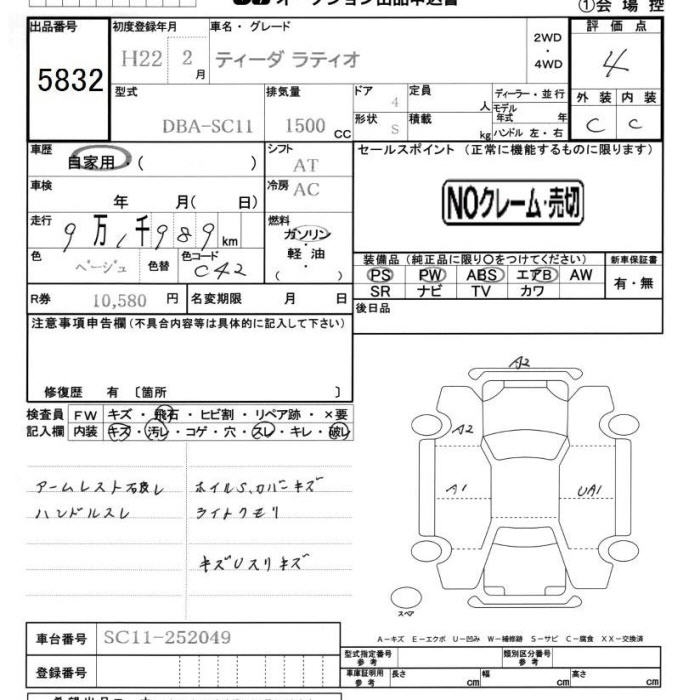 オークション出品申込書
①会場控
出品番号
5832
初度登録年月
H22 2 月
車名・グレード
ティーダ ラティオ
2WD
・
4WD
評価点
4
型式
DBA-SC11
排気量
1500 CC
ドア
4
定員
人
ディーラー・並行
モデル年式 年
形状
S
積載
kg
ハンドル 左・右
外装 内装
C C
車歴
自家用・( )
シフト
AT
セールスポイント (正常に機能するものに限ります)
NOクレーム・売切
車検
年 月( 日)
冷房
AC
走行
9万1千989km
燃料
ガソリン
・
軽油
( )
色
ベージュ
色替
色コード
C42
装備品(純正品に限り○をつけてください)
PS PW ABS エアB AW
SR ナビ TV カワ
新車保証書
有・無
R券
10,580 円
名変期限 月 日
後日品
注意事項申告欄(不具合内容等は具体的に記入して下さい)
修復歴 有 〔箇所 〕
検査員
記入欄
FW キズ・飛石・ヒビ割・リペア跡・×要
内装 キズ・汚レ・コゲ・穴・スレ・キレ・破レ
アームレスト不良し
ハンドルスレ
ホイルS、カバーキズ
ライトクモリ
キズUスリキズ
A2
A2
A1
UA1
スペア
A-キズ E-エクボ U-凹み W-補修跡 S-サビ C-腐食 XX-交換済
車台番号
SC11-252049
登録番号
型式指定番号
参考
類別区分番号
参考
車庫証明用
参考
長さ cm
幅 cm
高さ cm